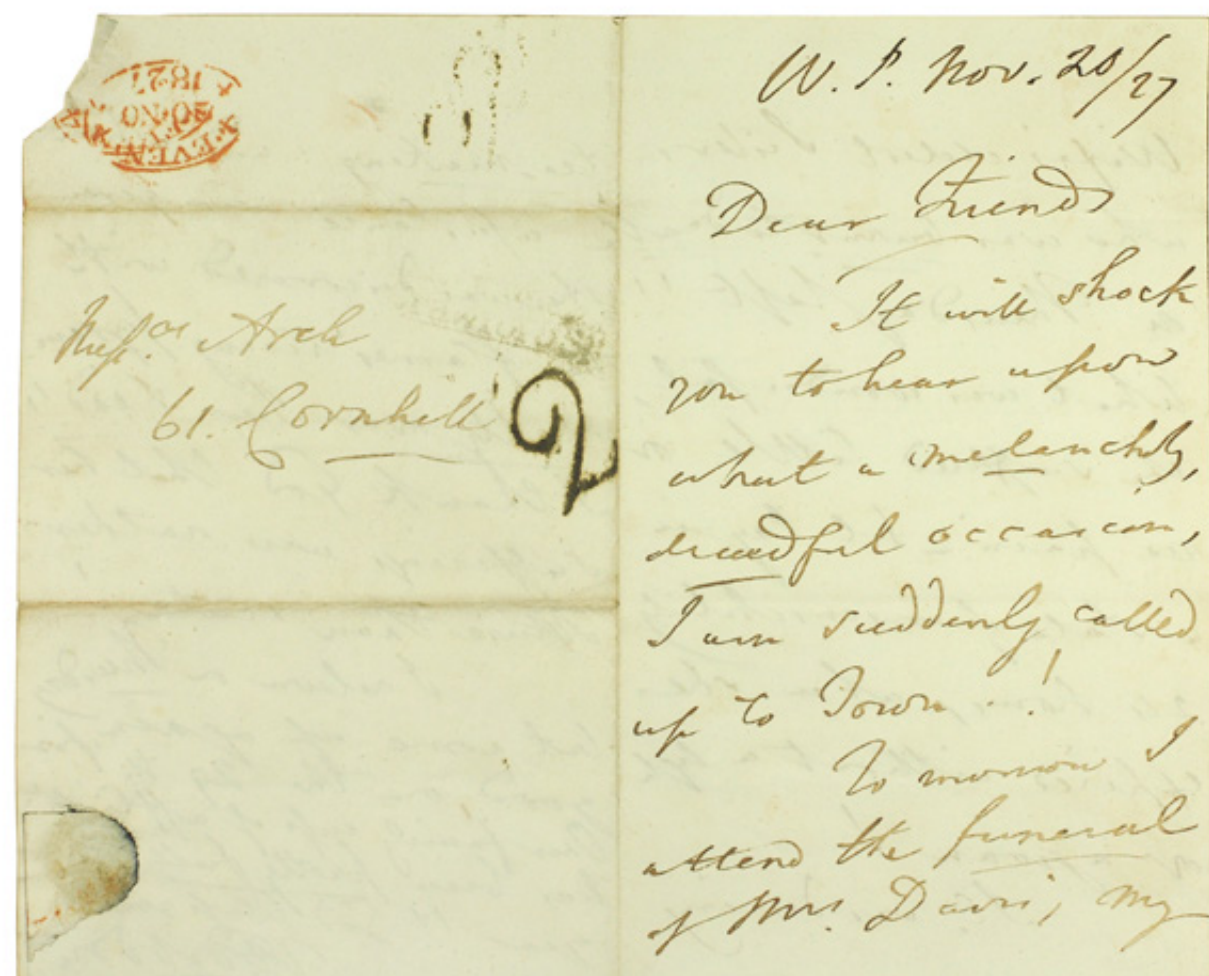 1827
20.NO
EVEN
Messrs Arch
61. Cornhill
2
W. P. Nov. 20/27
Dear Friends
It will shock
you to hear upon
what a melancholy,
dreadful occasion,
I am suddenly called
up to Town - !
To morrow I
attend the funeral
of Mrs. Davis, my